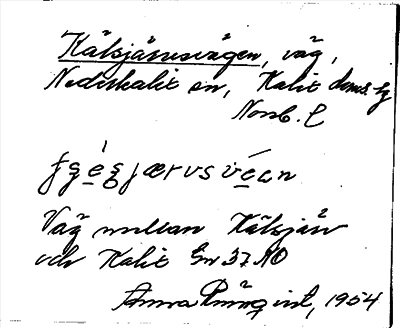 Kälsjärvsvägen, väg,
Nederkalix sn, Kalix doms. hg
Norrb. l
Väg mellan Kälsjärv
och Kalix Gm 37 NO
Anna Rönnqvist, 1954